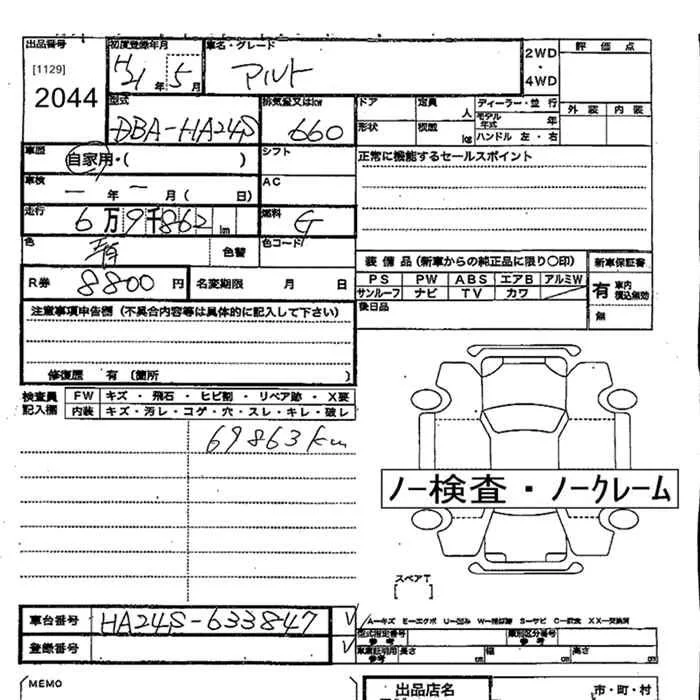 出品番号 初度登録年月 車名・グレード 2WD・4WD 評価点
[1129] H21年5月 アルト
2044
型式 排気量又はkw ドア 定員 人 ディーラー・並行 外装 内装
DBA-HA24S 660 形状 積載 kg モデル年式 年
ハンドル 左・右
車歴 自家用・( ) シフト 正常に機能するセールスポイント
車検 ー年ー月( 日) AC
走行 6万9千862 km 燃料 G
色 色替 色コード/ 装備品(新車からの純正品に限り〇印) 新車保証書
R券 8800円 名変期限 月 日 PS PW ABS エアB アルミW 有 車内積込無効
サンルーフ ナビ TV カワ
注意事項申告欄(不具合内容等は具体的に記入して下さい) 後日品 無
修復歴 有 〔箇所 )
検査員記入欄 FW キズ・飛石・ヒビ割・リペア跡・X要
内装 キズ・汚レ・コゲ・穴・スレ・キレ・破レ
69863km
ノー検査・ノークレーム
スペアT
[ ]
車台番号 HA24S-633847 ✓ A−キズ E−エクボ U−凹ミ S−サビ C−腐食 XX−交換済
型式指定番号 参考 類別区分番号 参考
登録番号 ✓ 車庫証明用 参考 長さ cm 幅 cm 高さ cm
MEMO 出品店名 市・町・村